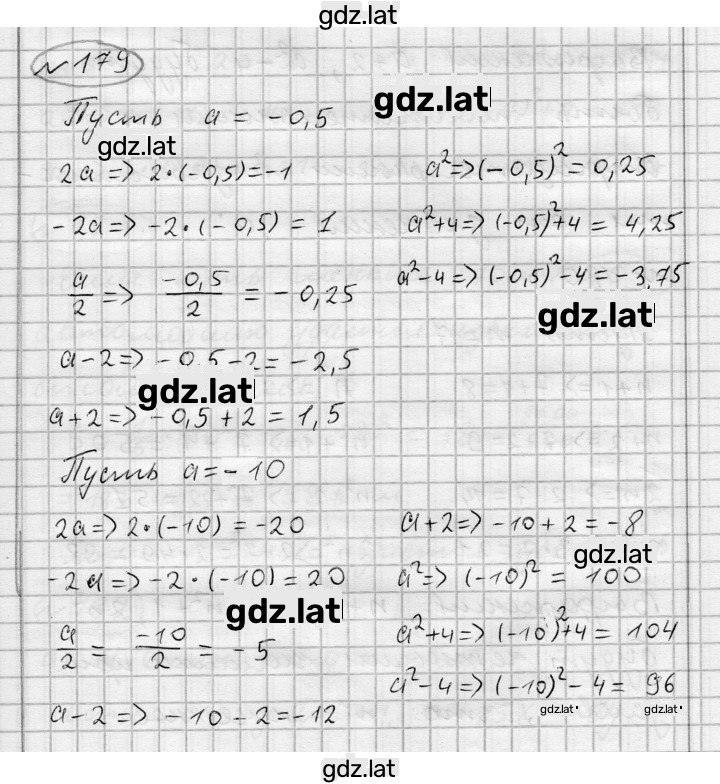 gdz.lat
№179
Пусть a = -0,5
gdz.lat
gdz.lat
2a => 2·(-0,5)=-1
-2a => -2·(-0,5) = 1
a/2 => -0,5/2 = -0,25
a-2 => -0,5-2 = -2,5
gdz.lat
a+2 => -0,5+2 = 1,5
a²=>(-0,5)² = 0,25
a²+4=> (-0,5)²+4 = 4,25
a²-4 => (-0,5)²-4 = -3,75
gdz.lat
Пусть a = -10
2a => 2·(-10) = -20
-2a => -2·(-10) = 20
gdz.lat
a/2 = -10/2 = -5
a-2 => -10-2=-12
a+2 => -10+2 = -8
gdz.lat
a² => (-10)² = 100
a²+4 => (-10)²+4 = 104
a²-4 => (-10)²-4 = 96
gdz.lat
gdz.lat
gdz.lat